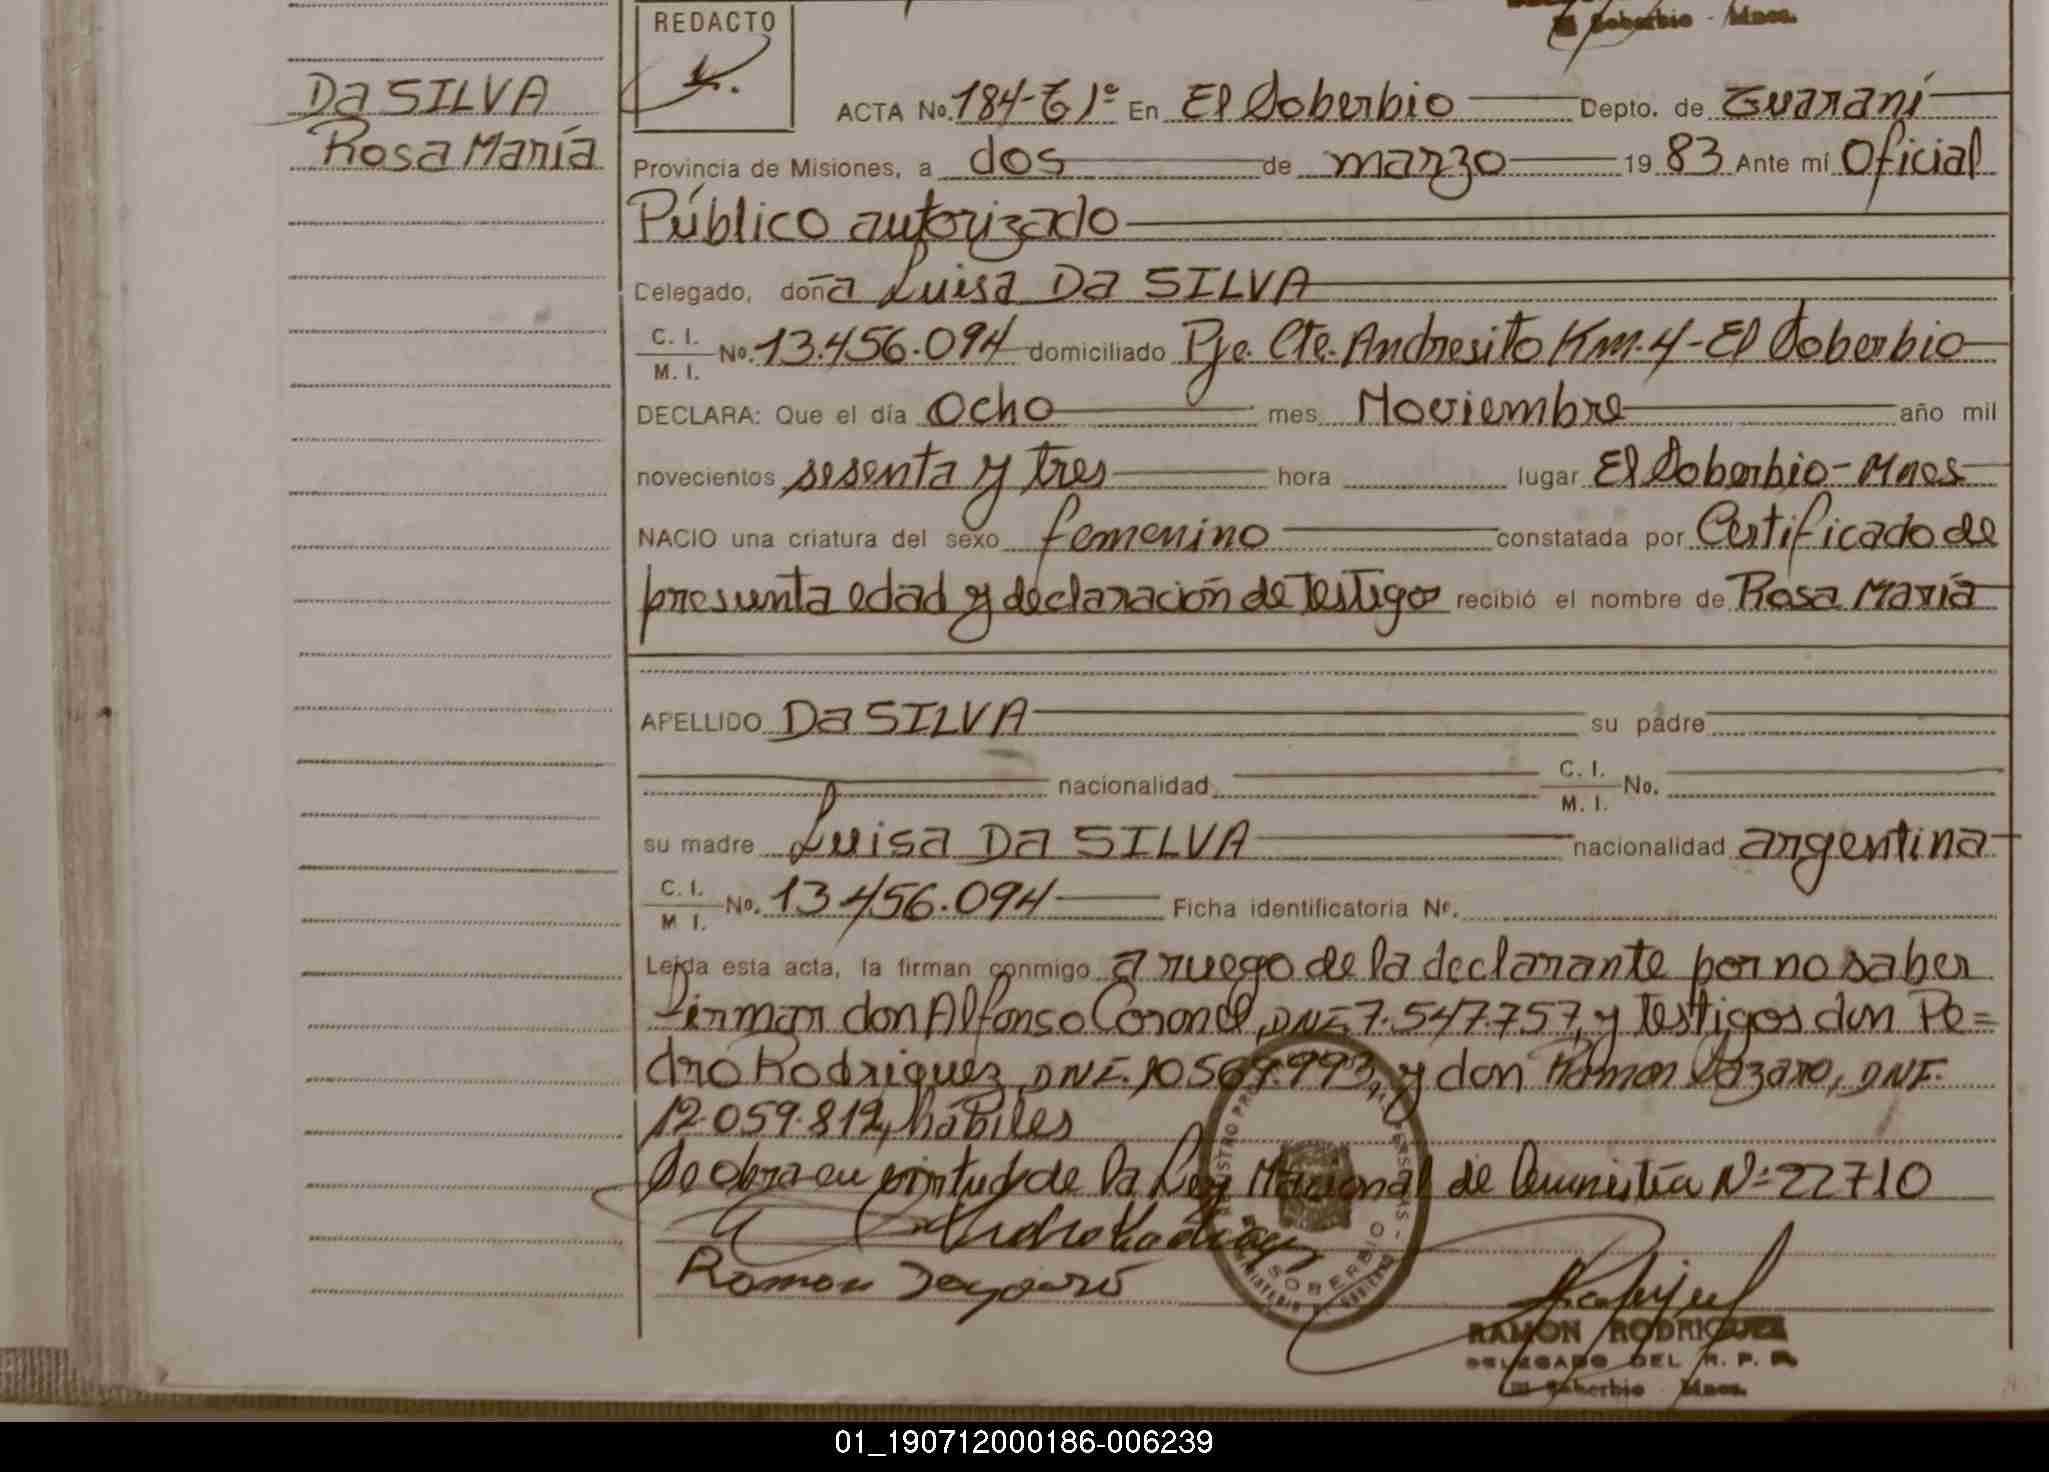 El Soberbio - Mnes.
REDACTO
Da SILVA
Rosa María
ACTA No. 184-T1º En El Soberbio Depto. de Guaraní
Provincia de Misiones, a dos de marzo 19 83 Ante mí Oficial
Público autorizado
Delegado, doña Luisa Da SILVA
C. I.
M. I. No. 13.456.094 domiciliado Pje. Cte. Andresito Km. 4 - El Soberbio
DECLARA: Que el día Ocho mes Noviembre año mil
novecientos sesenta y tres hora lugar El Soberbio - Mnes
NACIO una criatura del sexo femenino constatada por Certificado de
presunta edad y declaración de Testigos recibió el nombre de Rosa María
APELLIDO Da SILVA su padre
nacionalidad C. I.
M. I. No.
su madre Luisa Da SILVA nacionalidad argentina
C. I.
M. I. No. 13.456.094 Ficha identificatoria Nº.
Leída esta acta, la firman conmigo a ruego de la declarante por no saber
firmar don Alfonso Coronel, DNI. 7.547.757, y testigos don Pe=
dro Rodriguez, DNI. 10.569.993, y don Ramon Lazaro, DNI.
12.059.812, hábiles
Se obra en virtud de la Ley Nacional de Amnistía Nº 22710
Pedro Rodriguez
Ramon
SOBERBIO
RAMON RODRIGUEZ
DELEGADO DEL R. P. P.
El Soberbio Mnes.
01_190712000186-006239